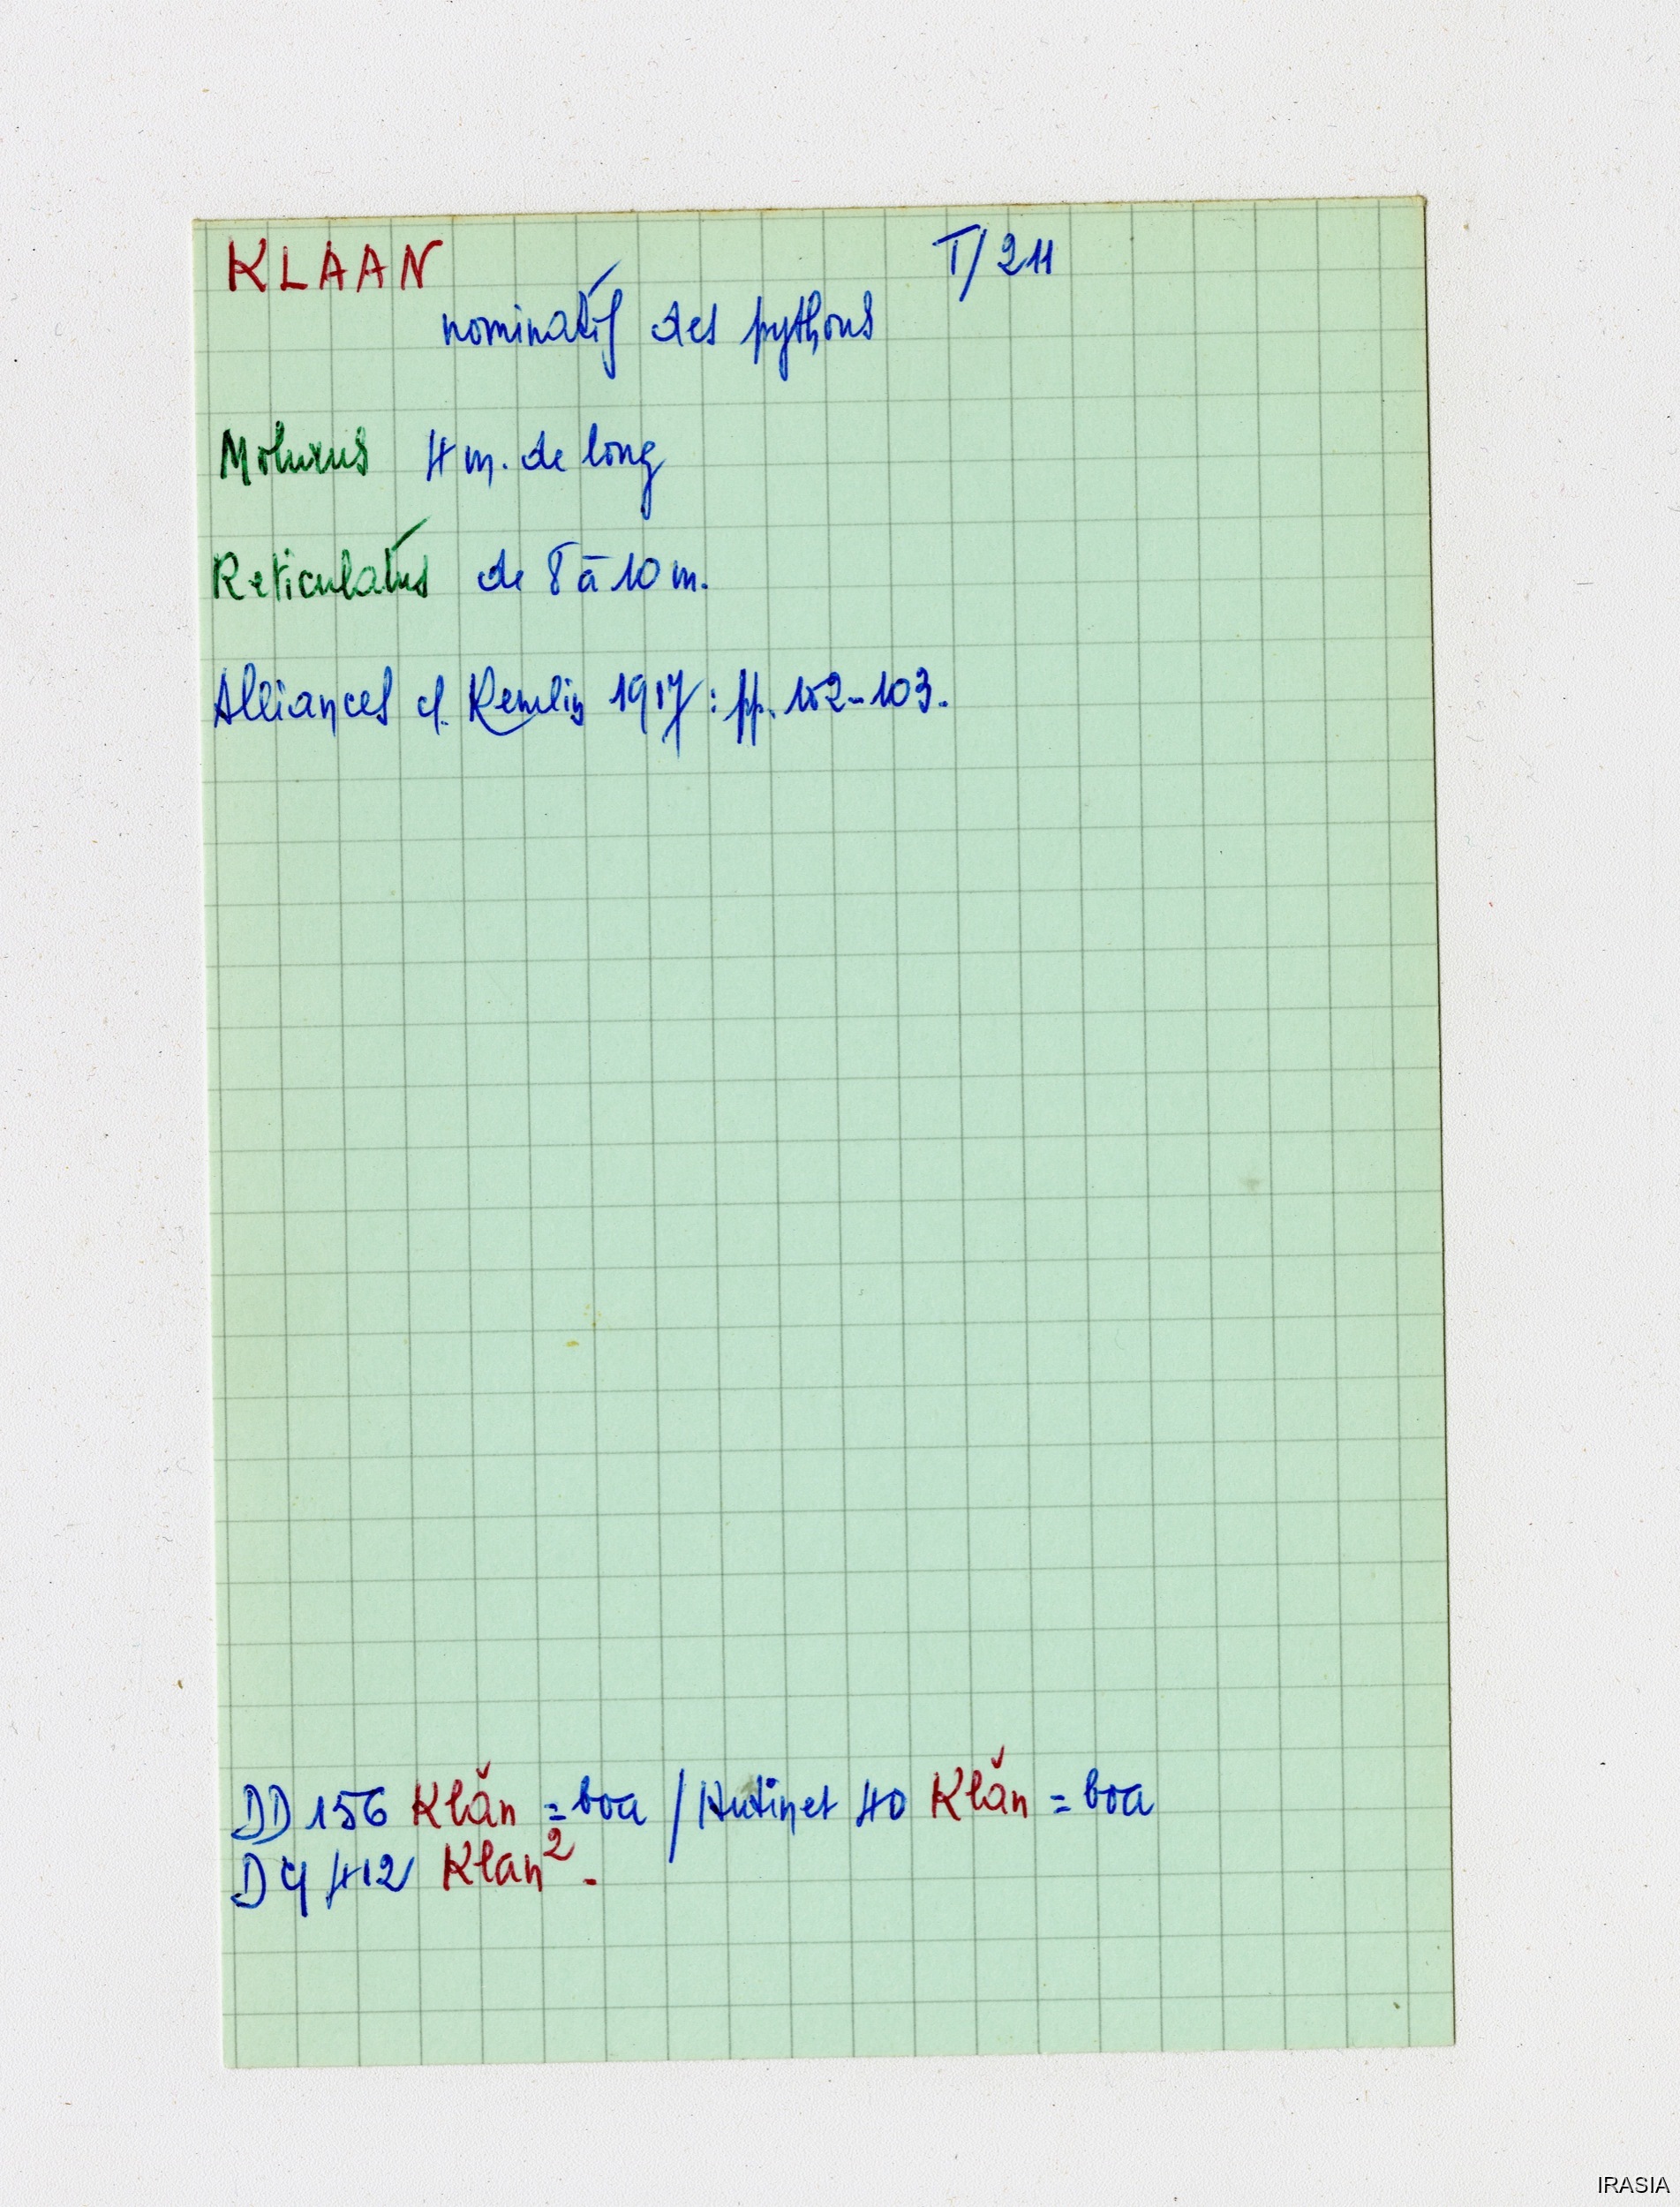 KLAAN T/211
nominatif des pythons
Molurus 4 m. de long
Reticulatus de 8 à 10 m.
Alliances cf. Kemlin 1917: pp. 102-103.
DD 156 Klăn = boa / Hutinet 40 Klăn = boa
DY 412 Klan² -
IRASIA